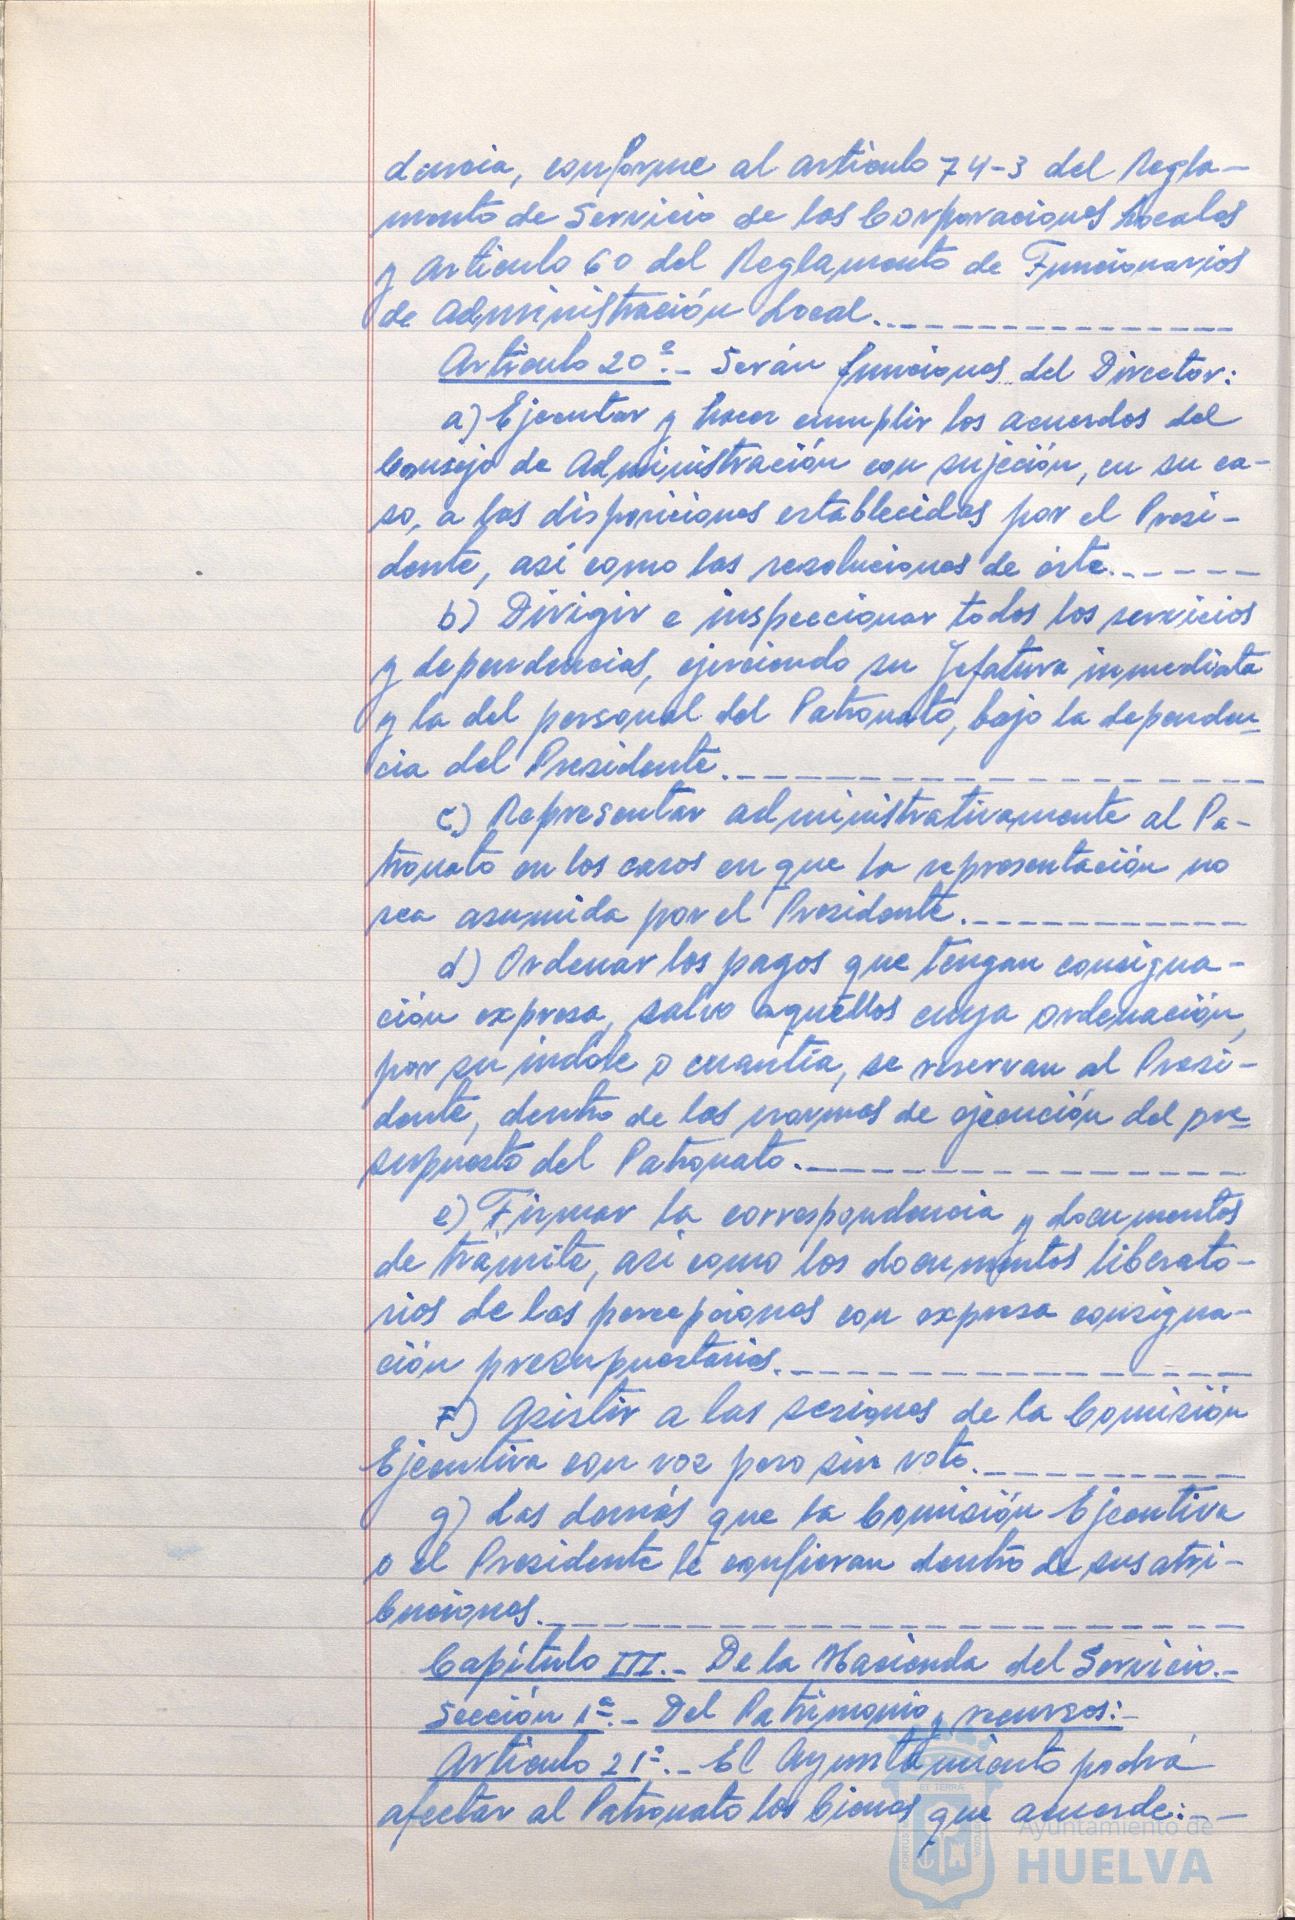 dencia, conforme al artículo 74-3 del Regla-
mento de Servicio de las Corporaciones Locales
y Artículo 60 del Reglamento de Funcionarios
de Administración Local.
Artículo 20º.- Serán funciones del Director:
a) Ejecutar y hacer cumplir los acuerdos del
Consejo de Administración con sujeción, en su ca-
so, a las disposiciones establecidas por el Presi-
dente, así como las resoluciones de éste.
b) Dirigir e inspeccionar todos los servicios
y dependencias, ejerciendo su Jefatura inmediata
y la del personal del Patronato, bajo la dependen-
cia del Presidente.
c) Representar administrativamente al Pa-
tronato en los casos en que la representación no
sea asumida por el Presidente.
d) Ordenar los pagos que tengan consigna-
ción expresa, salvo aquéllos cuya ordenación,
por su índole o cuantía, se reservan al Presi-
dente, dentro de las normas de ejecución del pre-
supuesto del Patronato.
e) Firmar la correspondencia y documentos
de trámite, así como los documentos liberato-
rios de las percepciones con expresa consigna-
ción presupuestarias.
F) Asistir a las sesiones de la Comisión
Ejecutiva con voz pero sin voto.
g) Las demás que la Comisión Ejecutiva
o el Presidente le confieran dentro de sus atri-
buciones.
Capítulo III.- De la Hacienda del Servicio.-
Sección 1ª.- Del Patrimonio y recursos:-
Artículo 21º.- El Ayuntamiento podrá
afectar al Patronato los bienes que acuerde:-
Ayuntamiento de
HUELVA